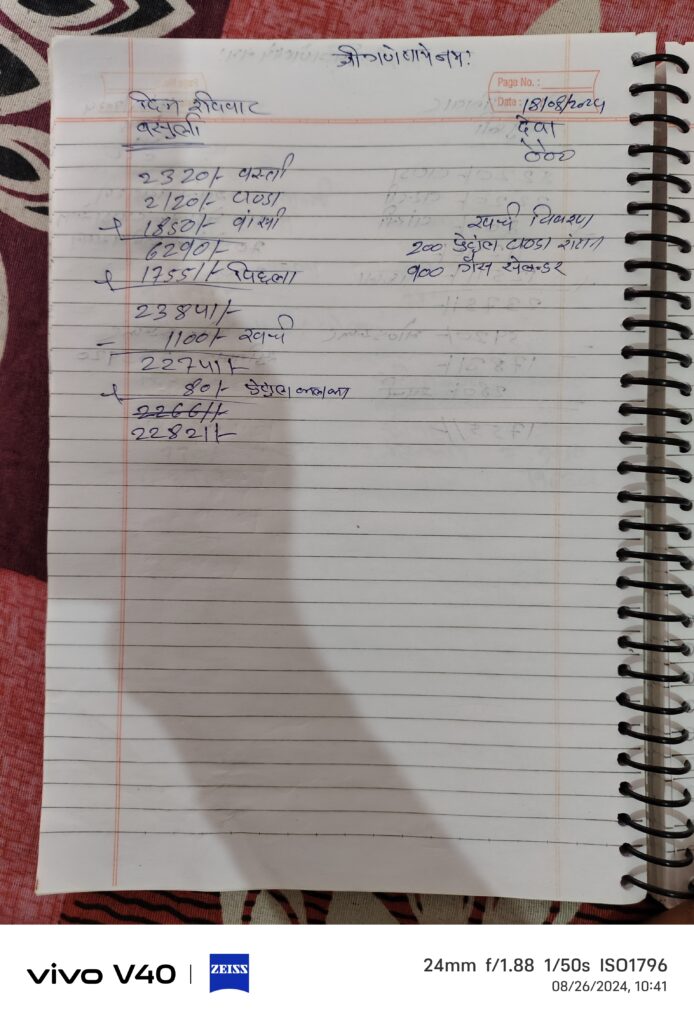 श्री गणेशाये नमः
Page No. :
Date : 18/08/2024
दिन रविवार
वसुली
देवा
2320/- बस्ती
2120/- टाण्डा
+ 1850/- बांसी
6290/-
+ 17551/- पिछला
23841/-
- 1100/- खर्चा
22741/-
+ 80/- पेट्रोल
22661/-
22821/-
खर्चा विवरण
200 पेट्रोल टाण्डा
900 गैस सेलन्डर
vivo V40 | ZEISS
24mm f/1.88 1/50s ISO1796
08/26/2024, 10:41